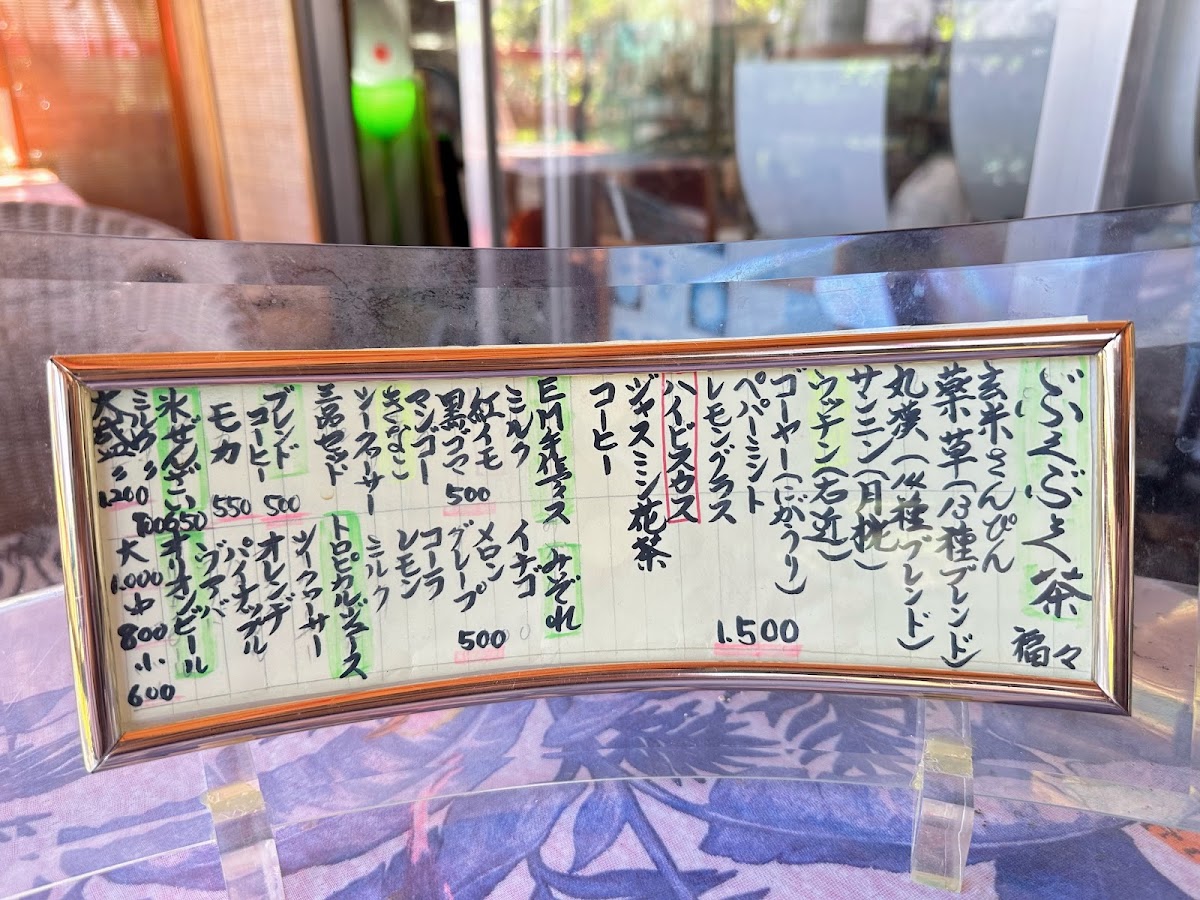 ぶくぶく茶 福々
玄米さんぴん
薬草(13種ブレンド)
丸漢(14種ブレンド)
サンニン(月桃)
ウッチン(右近)
ゴーヤー(にがうり)
ペパーミント
レモングラス
1.500
ハイビスカス
ジャスミン花茶
コーヒー
EM手作アイス
ミルク
紅イモ
黒ゴマ
500
マンゴー
きなこ
シークァーサー
三品セット
ブレンド
コーヒー
500
モカ
550
氷ぜんざい
650
ミルク〃
800
大盛〃
1.200
みぞれ
イチゴ
メロン
グレープ
500
コーラ
レモン
ミルク
トロピカルジュース
シークァーサー
オレンヂ
パイナップル
グヴァバ
オリオンビール
大 1.000
中 800
小 600